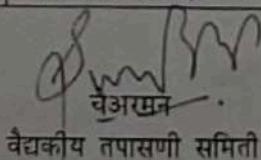 चेअरमन
वैद्यकीय तपासणी समिती